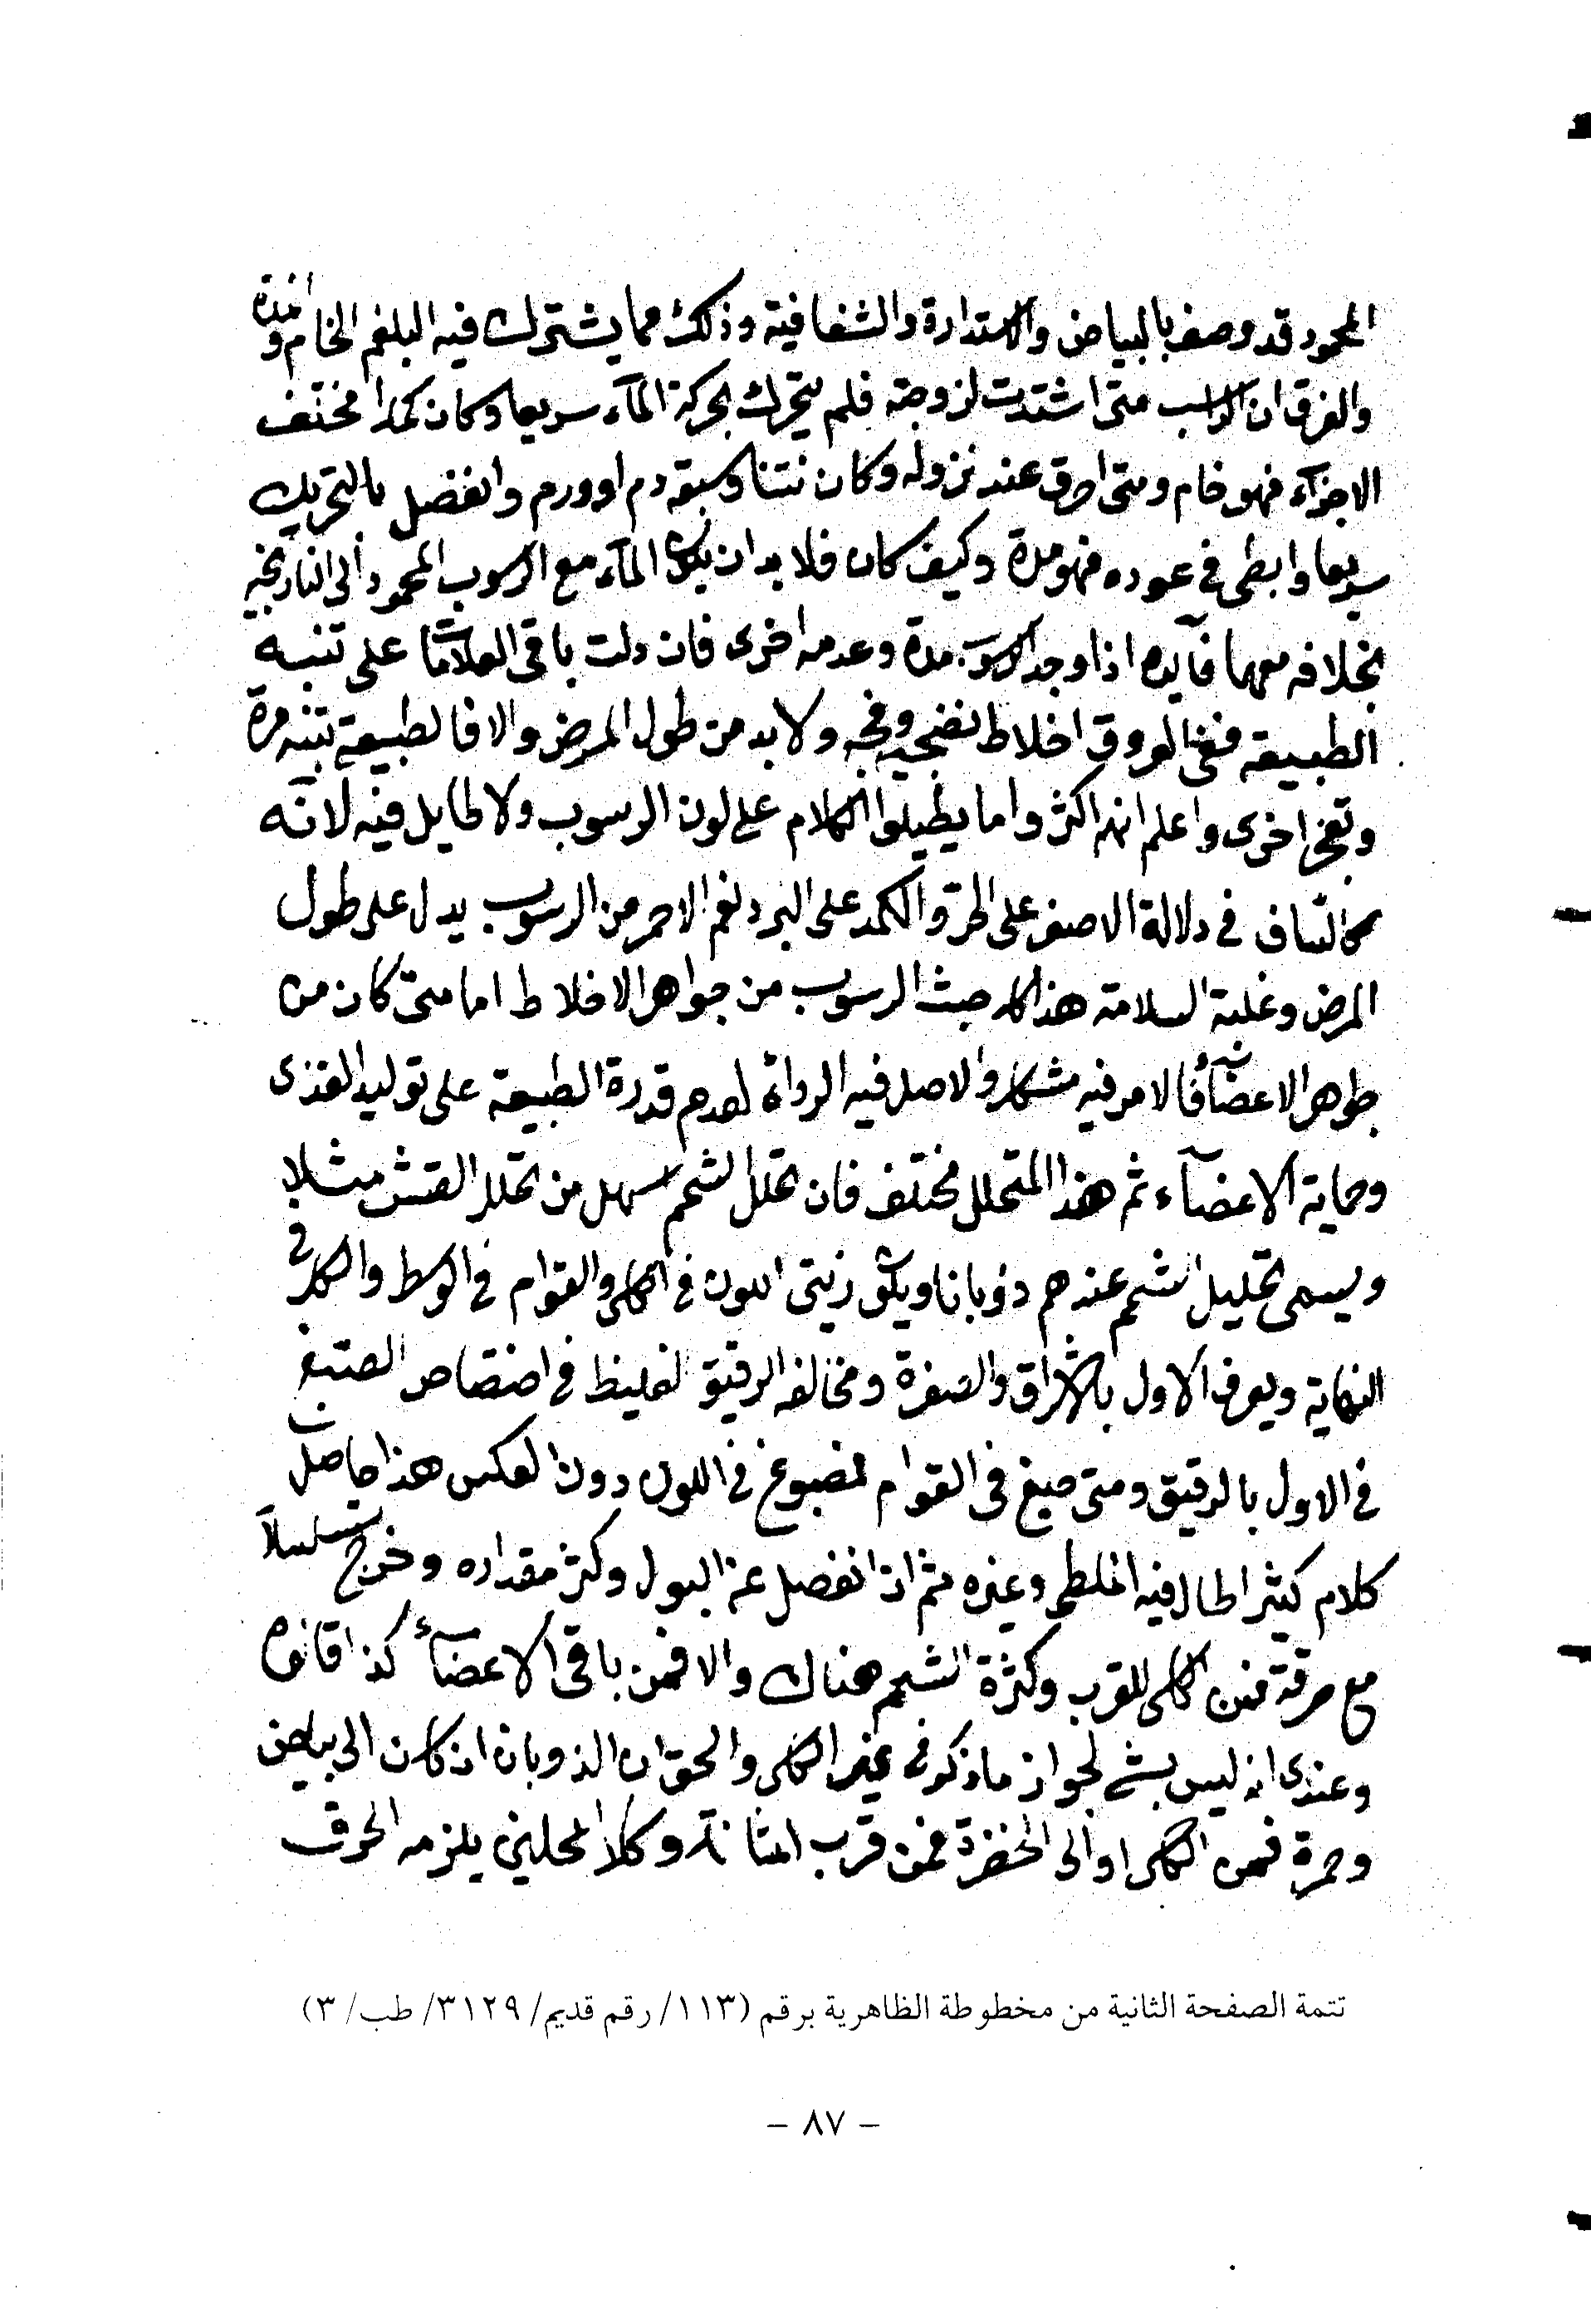 المحمود قد وصف بالبياض والاستدارة والشفافية وذلك مما يشترك فيه البلغم الخام و المدة
والفرق ان الراسب متى اشتدت لزوجته فلم يتحرك بحركة المآء سريعا وكان كمدا مختلف
الاجزآء فهو خام ومتى احرق عند نزوله وكان نتنا وسبقه دم او ورم وانفصل بالتحريك
سريعا وابطى في عوده فهو مدة وكيف كان فلا بد ان يكون المآء مع الرسوب المحمود الى النارنجيه
بخلافه معهما فآيده اذا وجد الرسوب مدة وعدمه اخرى فان دلت باقى العلامات على تنبه
الطبيعة ففى العروق اخلاط نضجيه وفجه ولا بد من طول المرض والا فالطبيعة تنبه مرة
وتعجز اخرى واعلم انهم اكثروا ما يطيلوا الكلام على لون الرسوب ولا طايل فيه لانه
كالسآف في دلالة الاصفر على الحر والكمد على البرد نعم الاحمر من الرسوب يدل على طول
المرض وغلبة السلامة هذا كله حيث الرسوب من جواهر الاخلاط اما متى كان من
جواهر الاعضآء فالامر فيه مشكل والاصل فيه الرداة لعدم قدرة الطبيعة على توليد الغذى
وحماية الاعضآء ثم هذا المتحلل مختلف فان تحلل الشحم اسهل من تحلل القشر مثلا
ويسمى تحليل الشحم عندهم ذوبانا ويكون زيتى اللون في الكلى والقوام في الوسط والكل في
النهاية ويعرف الاول بالاشراق والصفرة ومخالفه الرقيق الغليظ في اختصاص الصبغ
في الاول بالرقيق ومتى صبغ في القوام لمصبوغ في اللون دون العكس هذا حاصل
كلام كثير اطال فيه الملطى وغيره ثم اذا انفصل عن البول وكثر مقداره وخرج سلسلاً
مع حرقة فمن الكلى للقرب وكثرة الشحم هناك والا فمن باقى الاعضآء كذا قالوه
وعندى انه ليس بشئ لجواز ما ذكر في غير الكلى والحق ان الذوبان ان كان الى بياض
وحمرة فمن الكلى او الى الخضرة فمن قرب المثانة وكلا المحلين يلزمه الحرق
تتمة الصفحة الثانية من مخطوطة الظاهرية برقم (١١٣/ رقم قديم/ ٣١٢٩/ طب/ ٣)
– ٨٧ –